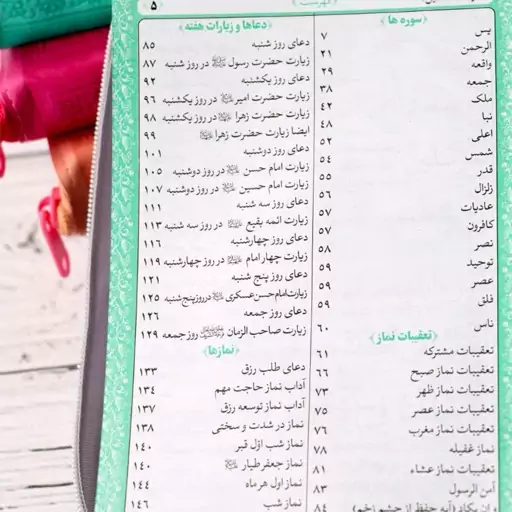 فهرست
۵
سوره ها
یس ۷
الرحمن ۲۱
واقعه ۲۹
جمعه ۳۸
ملک ۴۲
نبا ۴۸
اعلی ۵۲
شمس ۵۴
قدر ۵۵
زلزال ۵۶
عادیات ۵۷
کافرون ۵۷
نصر ۵۸
توحید ۵۹
عصر ۵۹
فلق ۵۹
ناس ۶۰
تعقیبات نماز
تعقیبات مشترکه ۶۱
تعقیبات نماز صبح ۶۶
تعقیبات نماز ظهر ۷۳
تعقیبات نماز عصر ۷۵
تعقیبات نماز مغرب ۷۶
نماز غفیله ۷۸
تعقیبات نماز عشاء ۸۱
آمن الرسول ۸۳
و ان یکاد (آیه حفظ از چشم زخم) ۸۴
دعاها و زیارات هفته
دعای روز شنبه ۸۵
زیارت حضرت رسول ﷺ در روز شنبه ۸۷
دعای روز یکشنبه ۹۲
زیارت حضرت امیر در روز یکشنبه ۹۶
زیارت حضرت زهرا در روز یکشنبه ۹۸
ایضا زیارت حضرت زهرا ۹۹
دعای روز دوشنبه ۱۰۱
زیارت امام حسن در روز دوشنبه ۱۰۵
زیارت امام حسین در روز دوشنبه ۱۰۷
دعای روز سه شنبه ۱۱۱
زیارت ائمه بقیع در روز سه شنبه ۱۱۳
دعای روز چهارشنبه ۱۱۶
زیارت چهار امام در روز چهارشنبه ۱۱۹
دعای روز پنج شنبه ۱۲۱
زیارت امام حسن عسکری در روز پنج شنبه ۱۲۵
دعای روز جمعه ۱۲۶
زیارت صاحب الزمان روز جمعه ۱۲۹
نمازها
دعای طلب رزق ۱۳۳
آداب نماز حاجت مهم ۱۳۴
آداب نماز توسعه رزق ۱۳۷
نماز در شدت و سختی ۱۳۸
نماز شب اوّل قبر ۱۴۰
نماز جعفر طیار ۱۴۰
نماز اول هر ماه ۱۴۴
نماز شب ۱۴۶